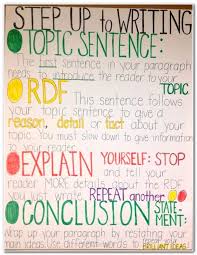 STEP UP to WRITING
TOPIC SENTENCE:
The first sentence in your paragraph
needs to introduce the reader to
your TOPIC
RDF This sentence follows
your topic sentence to give a
reason, detail or fact about your
topic. You must slow down to give information
to your reader.
EXPLAIN YOURSELF: STOP
and tell your
reader MORE details about the RDF
you just wrote REPEAT another
CONCLUSION STATE-
MENT:
Wrap up your paragraph by restating your
main ideas. Use different words to repeat your
BRILLIANT IDEAS.